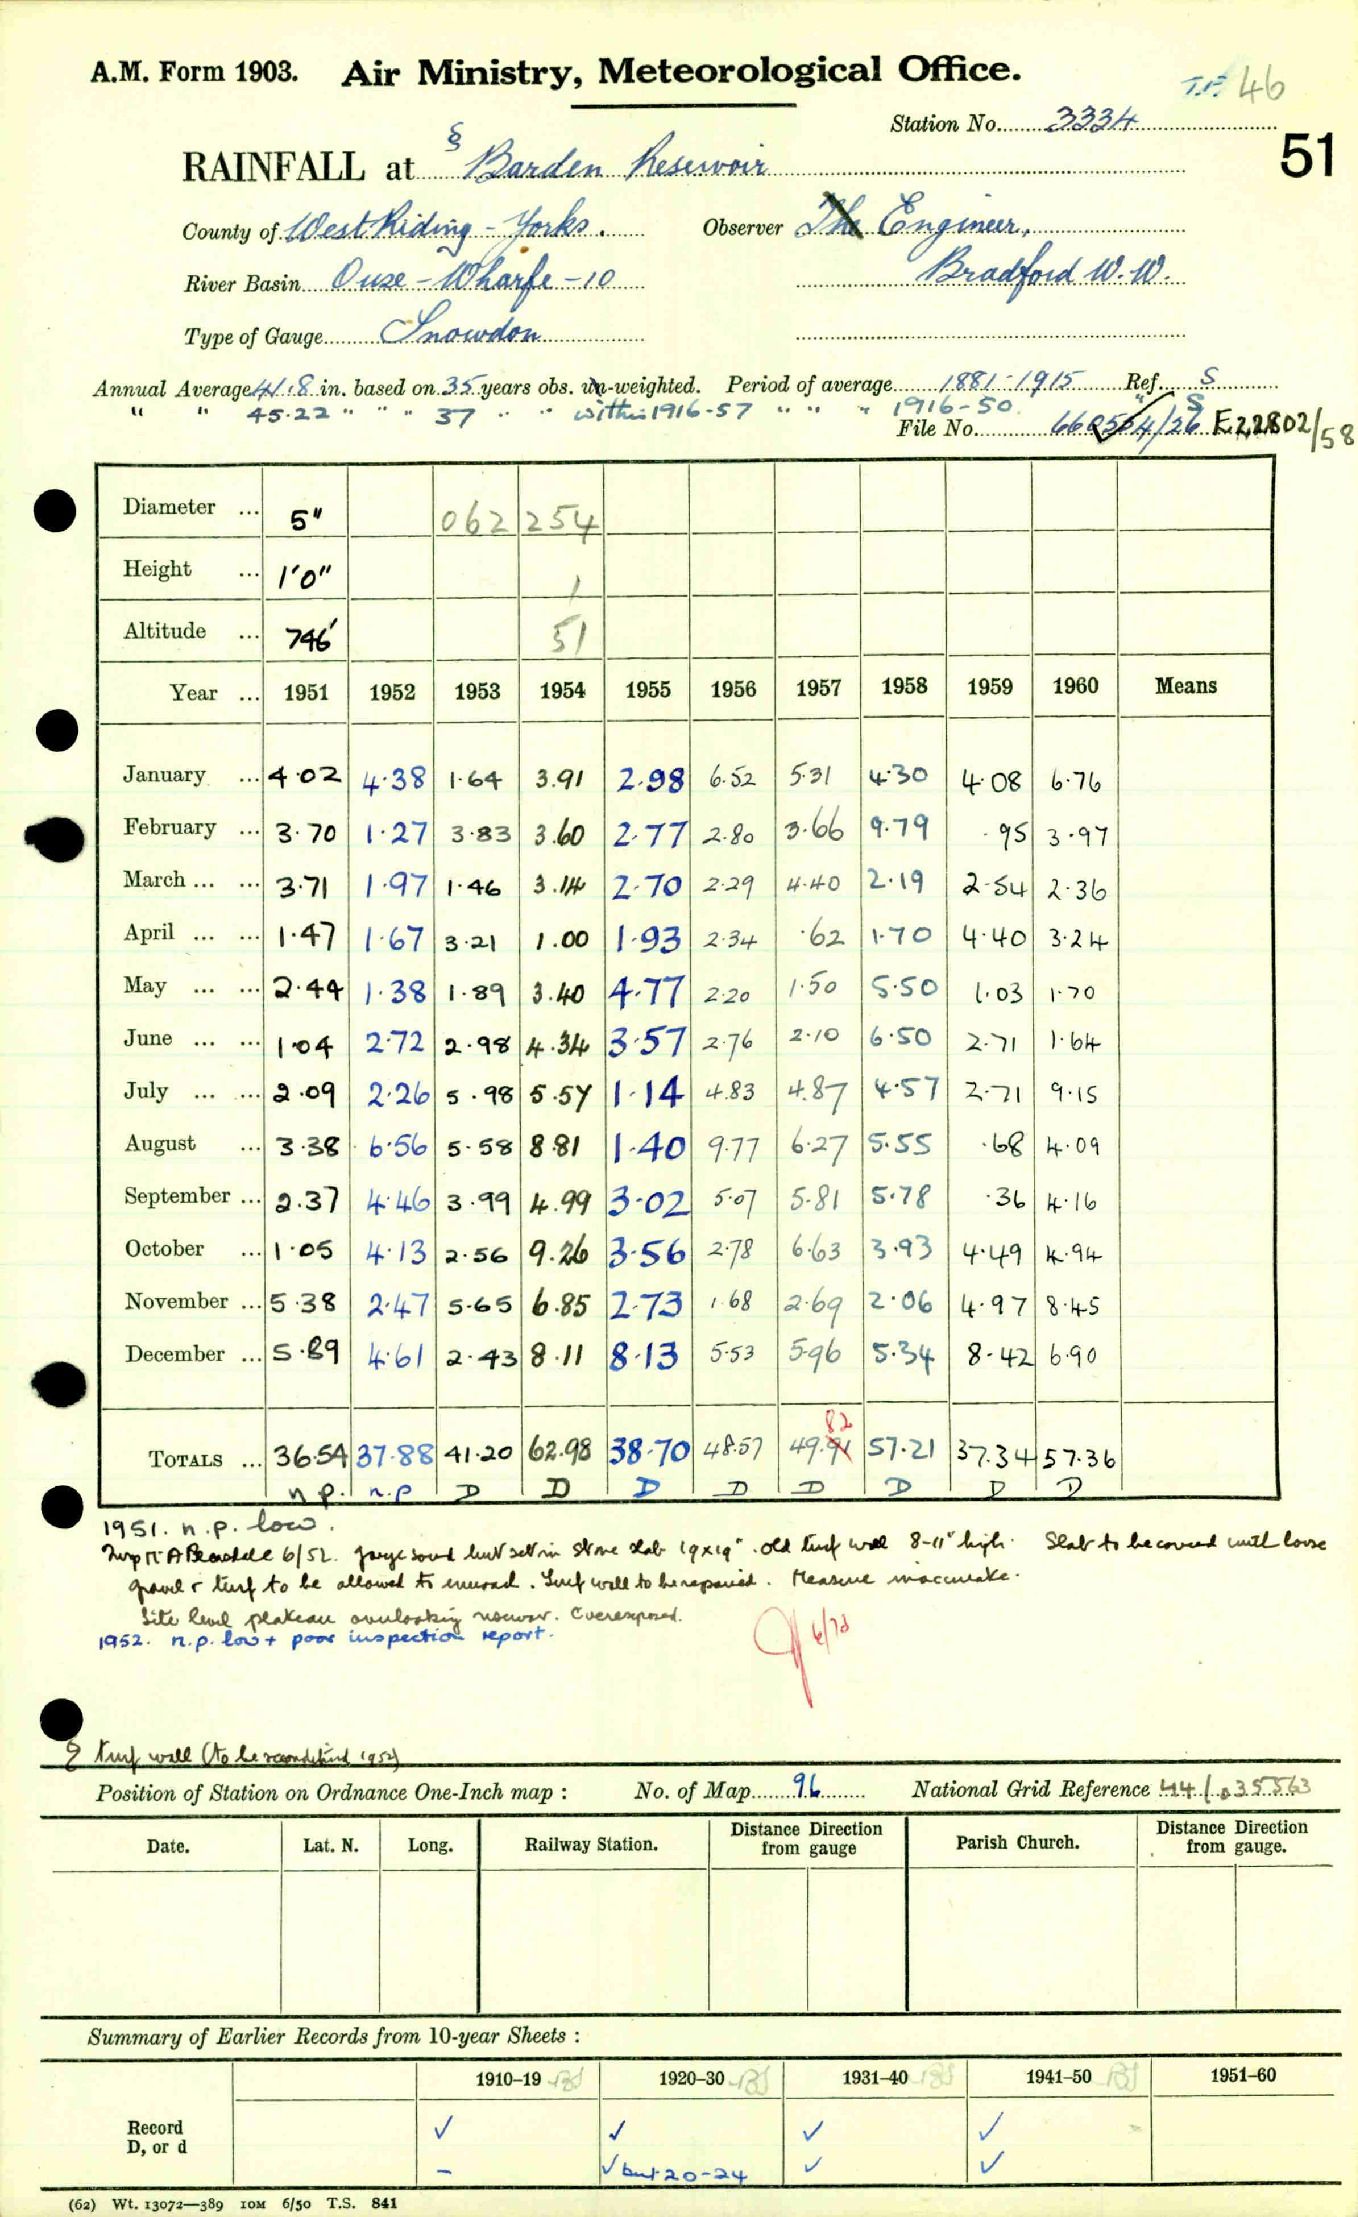 A.M. Form 1903. Air Ministry, Meteorological Office.
46
Station No. 3334
51
§
RAINFALL at Barden Reservoir
County of West Riding - Yorks. Observer The Engineer,
River Basin Ouse - Wharfe - 10 Bradford W.W.
Type of Gauge Snowdon
Annual Average 41.8 in. based on 35 years obs. un-weighted. Period of average 1881-1915 Ref. S
" " 45.22 " " " 37 " " within 1916-57 " " " 1916-50 " S
File No. E22802/58
Diameter ... 5" 062 254
Height ... 1'0" 1
Altitude ... 746' 51
Year ... 1951 1952 1953 1954 1955 1956 1957 1958 1959 1960 Means
January ... 4.02 4.38 1.64 3.91 2.98 6.52 5.31 4.30 4.08 6.76
February ... 3.70 1.27 3.83 3.60 2.77 2.80 3.66 9.79 .95 3.97
March ... ... 3.71 1.97 1.46 3.14 2.70 2.29 4.40 2.19 2.54 2.36
April ... ... 1.47 1.67 3.21 1.00 1.93 2.34 .62 1.70 4.40 3.24
May ... ... 2.44 1.38 1.89 3.40 4.77 2.20 1.50 5.50 1.03 1.70
June ... ... 1.04 2.72 2.98 4.34 3.57 2.76 2.10 6.50 2.71 1.64
July ... ... 2.09 2.26 5.98 5.57 1.14 4.83 4.87 4.57 2.71 9.15
August ... 3.38 6.56 5.58 8.81 1.40 9.77 6.27 5.55 .68 4.09
September ... 2.37 4.46 3.99 4.99 3.02 5.07 5.81 5.78 .36 4.16
October ... 1.05 4.13 2.56 9.26 3.56 2.78 6.63 3.93 4.49 4.94
November ... 5.38 2.47 5.65 6.85 2.73 1.68 2.69 2.06 4.97 8.45
December ... 5.89 4.61 2.43 8.11 8.13 5.53 5.96 5.34 8.42 6.90
82
TOTALS ... 36.54 37.88 41.20 62.98 38.70 48.57 49.91 57.21 37.34 57.36
n.p. n.p D D D D D D D D
1951. n.p. low.
6/52. gauge sound but set in stone slab 19x19" old turf wall 8-11" high. Slab to be covered with loose
gravel & turf to be allowed to . Turf wall to be repaired. Measure inaccurate.
Site level plateau overlooking . Overexposed.
1952. n.p. low + poor inspection report.
6/73
§ Turf wall (to be reconditioned 1952)
Position of Station on Ordnance One-Inch map : No. of Map 96 National Grid Reference 44/035563
Date. Lat. N. Long. Railway Station. Distance from gauge Direction Parish Church. Distance from gauge. Direction
Summary of Earlier Records from 10-year Sheets :
1910–19 1920–30 1931–40 1941–50 1951–60
Record ✓ ✓ ✓ ✓
D, or d – ✓ but 20-24 ✓ ✓
(62) Wt. 13072—389 10M 6/50 T.S. 841